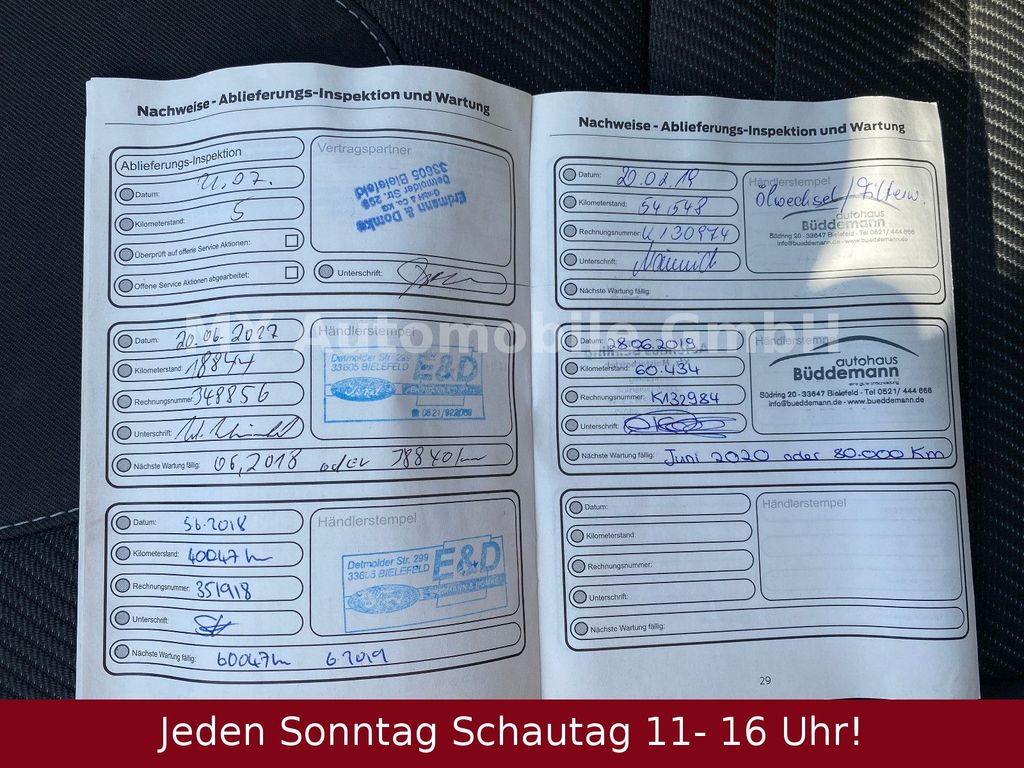 Nachweise - Ablieferungs-Inspektion und Wartung
Ablieferungs-Inspektion
Datum: 21.07.
Kilometerstand: 5
Überprüft auf offene Service Aktionen:
Offene Service Aktionen abgearbeitet:
Vertragspartner
Erdmann & Domke
GmbH & Co. KG
Detmolder Str. 299
33605 Bielefeld
Unterschrift:
Datum: 20.06.2017
Kilometerstand: 18844
Rechnungsnummer: 348856
Unterschrift:
Nächste Wartung fällig: 06,2018 oder 38840 km
Händlerstempel
Detmolder Str. 299
33605 BIELEFELD
E&D
Datum: 5.6.2018
Kilometerstand: 40047 km
Rechnungsnummer: 351918
Unterschrift:
Nächste Wartung fällig: 60047 km 6.2019
Händlerstempel
Detmolder Str. 299
33605 BIELEFELD
E&D
Nachweise - Ablieferungs-Inspektion und Wartung
Datum: 20.02.19
Kilometerstand: 54.548
Rechnungsnummer: K130974
Unterschrift:
Nächste Wartung fällig:
Händlerstempel
Ölwechsel/Filterw.
autohaus
Büddemann
Südring 20 - 33647 Bielefeld - Tel 0521/ 444 666
info@bueddemann.de - www.bueddemann.de
Datum: 28.06.2019
Kilometerstand: 60.434
Rechnungsnummer: K132984
Unterschrift:
Nächste Wartung fällig: Juni 2020 oder 80.000 Km
Händlerstempel
autohaus
Büddemann
Südring 20 - 33647 Bielefeld - Tel 0521/ 444 666
info@bueddemann.de - www.bueddemann.de
Datum:
Kilometerstand:
Rechnungsnummer:
Unterschrift:
Nächste Wartung fällig:
Händlerstempel
29
MY Automobile GmbH
Jeden Sonntag Schautag 11- 16 Uhr!